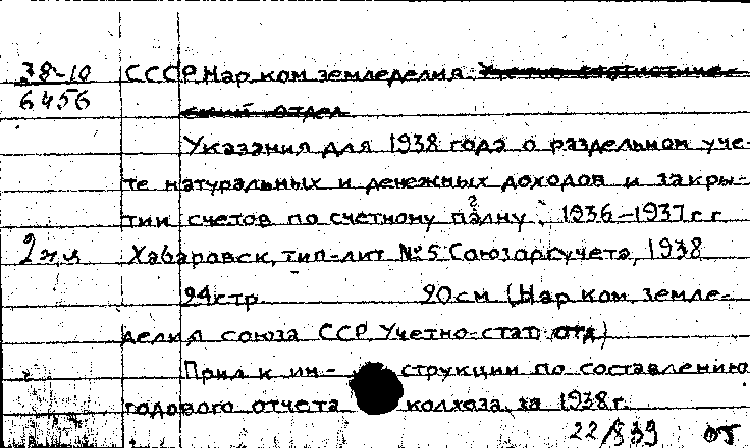 38-10 СССР. Нар. ком. земледелия. Учетно-статистиче-
6456 ский отдел
Указания для 1938 года о раздельном уче-
те натуральных и денежных доходов и закры-
тии счетов по счетному плану, 1936-1937 г.г.
2 экз Хабаровск, тип-лит №5 Союзоргучета, 1938
24 стр. 20 см (Нар. ком. земле-
делия союза ССР. Учетно-стат. отд.)
Прил. к ин- струкции по составлению
годового отчета колхоза за 1938 г.